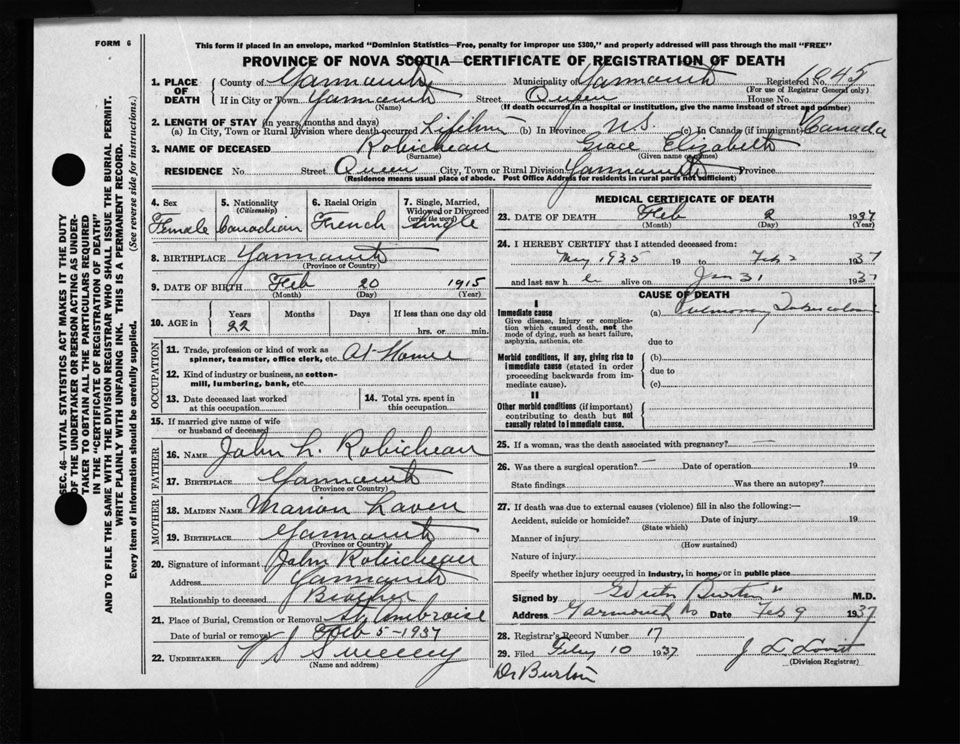 FORM 6
This form if placed in an envelope, marked "Dominion Statistics—Free, penalty for improper use $300," and properly addressed will pass through the mail "FREE"
PROVINCE OF NOVA SCOTIA—CERTIFICATE OF REGISTRATION OF DEATH
1. PLACE OF DEATH County of Yarmouth Municipality of Yarmouth Registered No. 1045
(For use of Registrar General only)
If in City or Town Yarmouth Street Queen House No.
(Name) (If death occurred in a hospital or institution, give the name instead of street and number)
2. LENGTH OF STAY (in years, months and days)
(a) In City, Town or Rural Division where death occurred Lifetime (b) In Province N.S. (c) In Canada (if immigrant) Canada
3. NAME OF DECEASED Robicheau Grace Elizabeth
(Surname) (Given name or names)
RESIDENCE No. Street Queen City, Town or Rural Division Yarmouth Province
(Residence means usual place of abode. Post Office Address for residents in rural parts not sufficient)
4. Sex Female
5. Nationality (Citizenship) Canadian
6. Racial Origin French
7. Single, Married, Widowed or Divorced (write the word) Single
8. BIRTHPLACE Yarmouth
(Province or Country)
9. DATE OF BIRTH Feb 20 1915
(Month) (Day) (Year)
10. AGE in Years 22 Months Days If less than one day old
hrs. or min.
OCCUPATION
11. Trade, profession or kind of work as spinner, teamster, office clerk, etc. At Home
12. Kind of industry or business, as cotton-mill, lumbering, bank, etc.
13. Date deceased last worked at this occupation
14. Total yrs. spent in this occupation
15. If married give name of wife or husband of deceased
FATHER
16. NAME John L. Robicheau
17. BIRTHPLACE Yarmouth
(Province or Country)
MOTHER
18. MAIDEN NAME Marion
19. BIRTHPLACE Yarmouth
(Province or Country)
20. Signature of informant John Robicheau
Address Yarmouth
Relationship to deceased Brother
21. Place of Burial, Cremation or Removal St. Ambroise
Date of burial or removal Feb 5-1937
22. UNDERTAKER V S Sweeney
(Name and address)
MEDICAL CERTIFICATE OF DEATH
23. DATE OF DEATH Feb 2 1937
(Month) (Day) (Year)
24. I HEREBY CERTIFY that I attended deceased from:
May 1935 19 to Feb 2 1937
and last saw h er alive on Jan 31 1937
CAUSE OF DEATH
I
Immediate cause (a) Pulmonary Tuberculosis
Give disease, injury or complication which caused death, not the mode of dying, such as heart failure, asphyxia, asthenia, etc.
due to
Morbid conditions, if any, giving rise to immediate cause (stated in order proceeding backwards from immediate cause).
(b)
due to
(c)
II
Other morbid conditions (if important) contributing to death but not causally related to immediate cause.
25. If a woman, was the death associated with pregnancy? —
26. Was there a surgical operation? — Date of operation 19
State findings Was there an autopsy?
27. If death was due to external causes (violence) fill in also the following:—
Accident, suicide or homicide? Date of injury 19
(State which)
Manner of injury
(How sustained)
Nature of injury
Specify whether injury occurred in industry, in home, or in public place
Signed by Burton M.D.
Address Yarmouth NS Date Feb 9 1937
28. Registrar's Record Number 17
29. Filed Feby 10 1937 J L Lovitt
(Division Registrar)
Dr Burton
SEC. 46—VITAL STATISTICS ACT MAKES IT THE DUTY
OF THE UNDERTAKER OR PERSON ACTING AS UNDER-
TAKER TO OBTAIN ALL THE PARTICULARS REQUIRED
IN THE "CERTIFICATE OF REGISTRATION OF DEATH"
AND TO FILE THE SAME WITH THE DIVISION REGISTRAR WHO SHALL ISSUE THE BURIAL PERMIT.
WRITE PLAINLY WITH UNFADING INK. THIS IS A PERMANENT RECORD.
Every item of information should be carefully supplied. (See reverse side for instructions.)